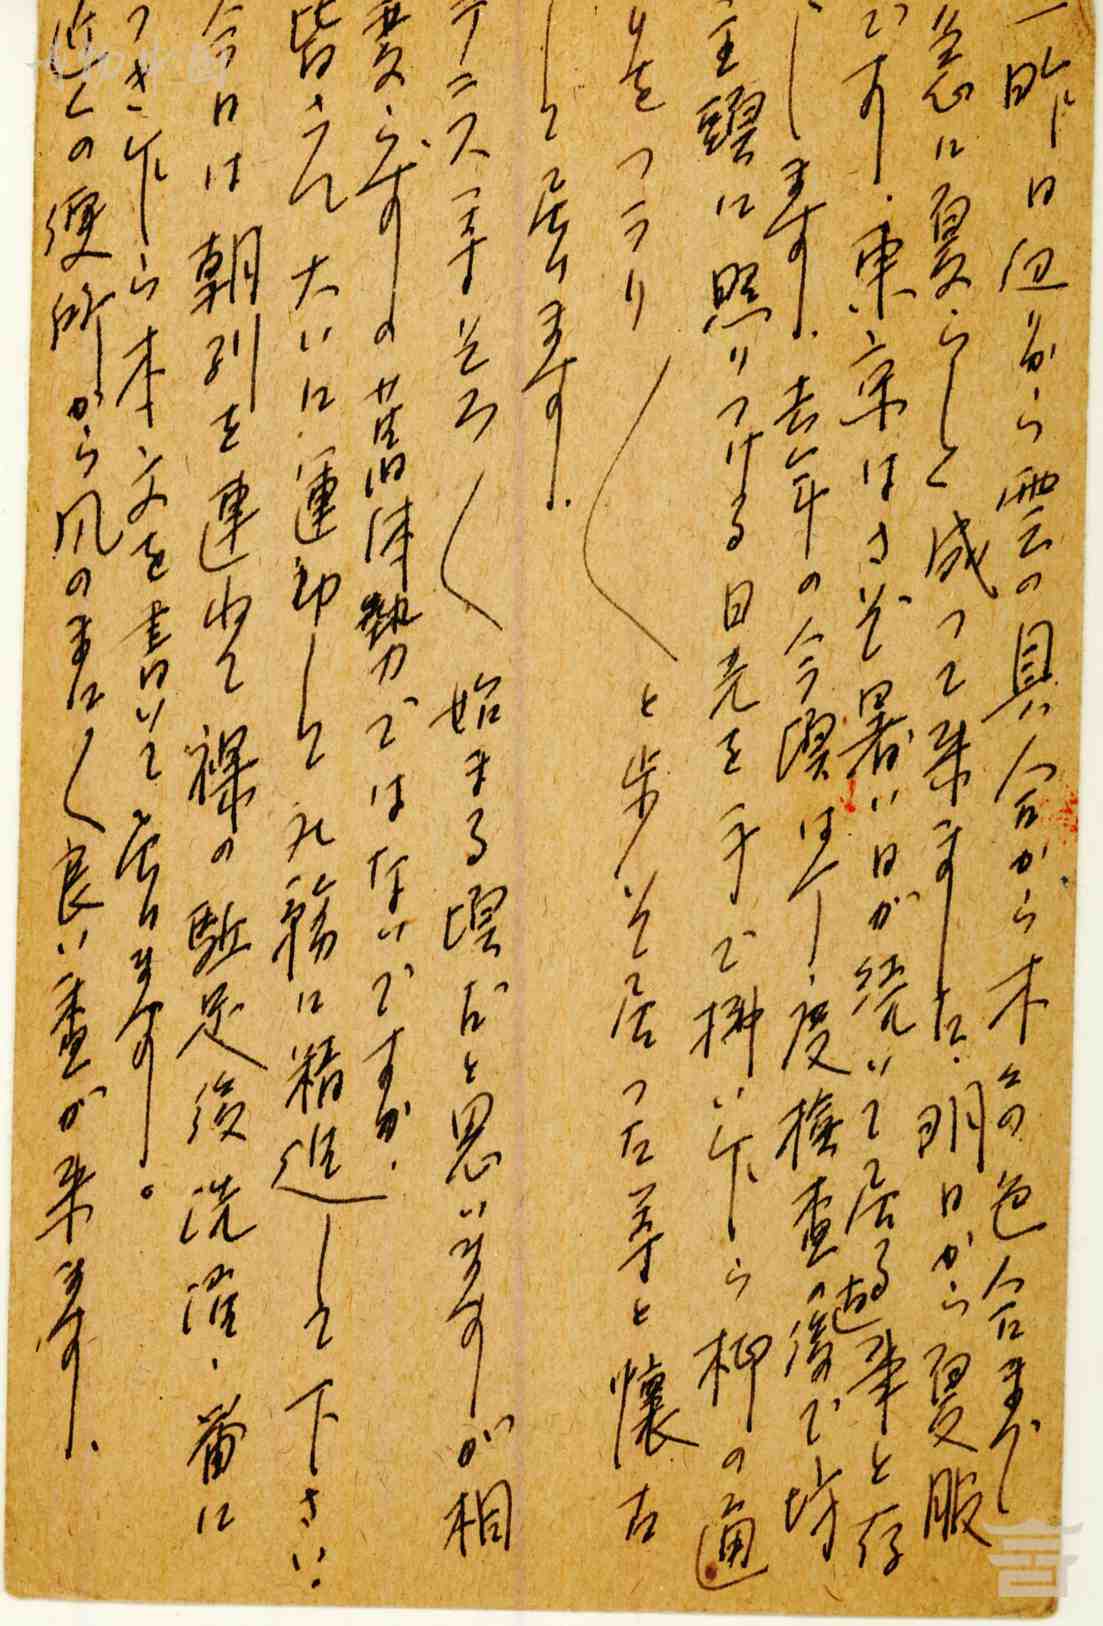 一昨日辺りから雲の具合から木々の色合まで
急に夏らしく成って来ました。明日から夏服
です。東京はさぞ暑い日が続いて居る事と存
じます。去年の今頃は丁度検査の後で坊
主頭に照りつける日光を手で拂い乍ら柳の通
りをフラリ〳〵と歩いて居った等と懐古
して居ります。
テニス等そろ〳〵始まる頃だと思いますが相
変らずの旧体勢ではないですか。
皆さん大いに運動して九務に精進して下さい。
今日は朝別を連れて裸の駈足後洗濯、番に
つき乍ら本文を書いて居ります。
近くの便所から風のまに〳〵良い香が来ます。